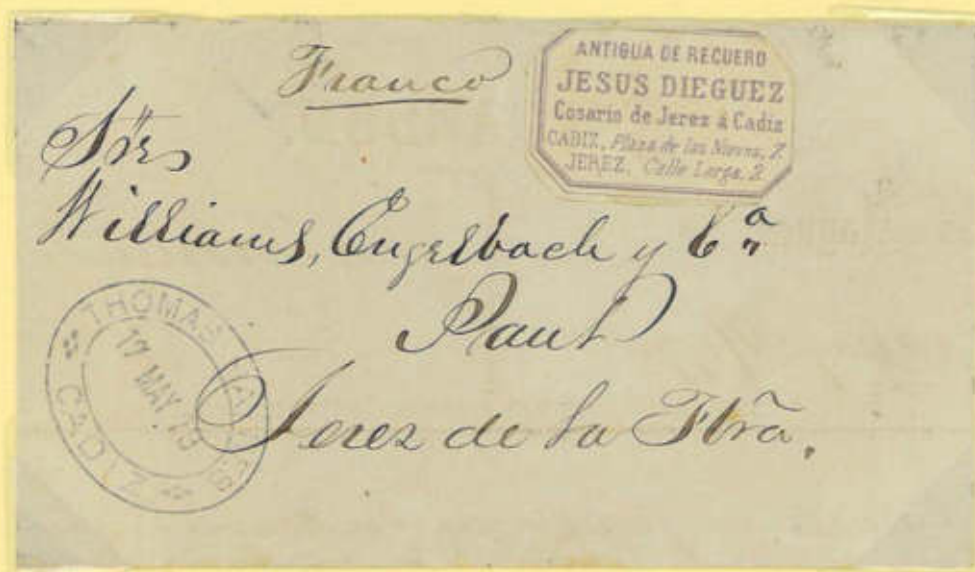 Franco
ANTIGUA DE RECUERO
JESUS DIEGUEZ
Cosario de Jerez á Cadiz
CADIZ, Plaza de las Nieves, 7.
JEREZ, Calle Larga, 2
Sres
Williams, Engelbach y Cª
Paul
Jerez de la Ftrã.
THOMAS
17 MAY.
CADIZ